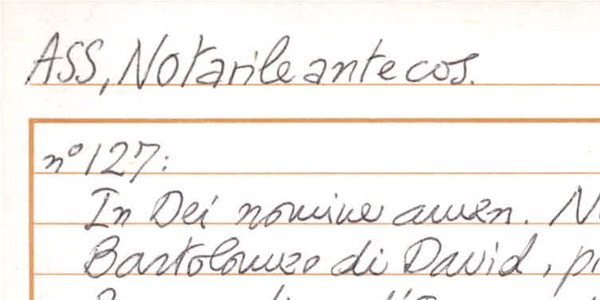 ASS, Notarile antecos.
n° 127:
In Dei nomine amen. N
Bartolomeo di David, p